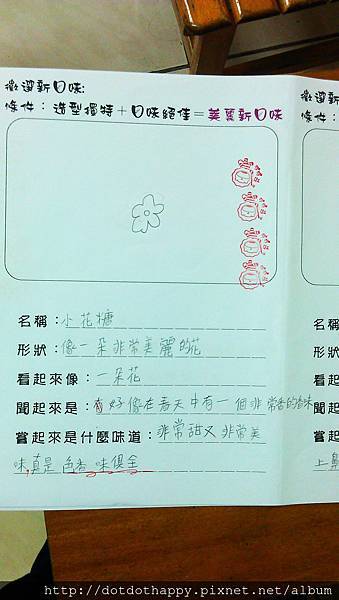 徵選新口味:
條件：造型獨特＋口味絕佳＝美質新口味
名稱：小花糖
形狀：像一朵非常美麗的花
看起來像：一朵花
聞起來是：好像在春天中有一個非常香的香味
嘗起來是什麼味道：非常甜又非常美
味,真是色香味俱全
徵選新
條件：
名稱
形狀
看起
聞起
嘗起
上鼻
http://dotdothappy.pixnet.net/album